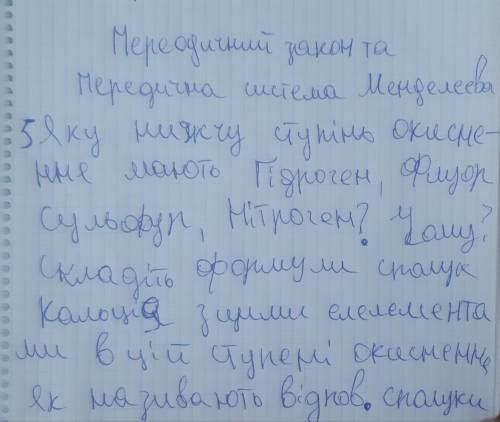 Переодичний закон та
Передична система Менделєєва
5 Яку нижчу ступінь окисне-
ння мають Гідроген, Флуор
Сульфур, Нітроген? Чому?
Складіть формули сполук
Калоція з цими елелемента
ми в цій ступені окисення
як називають віднов. сполуки